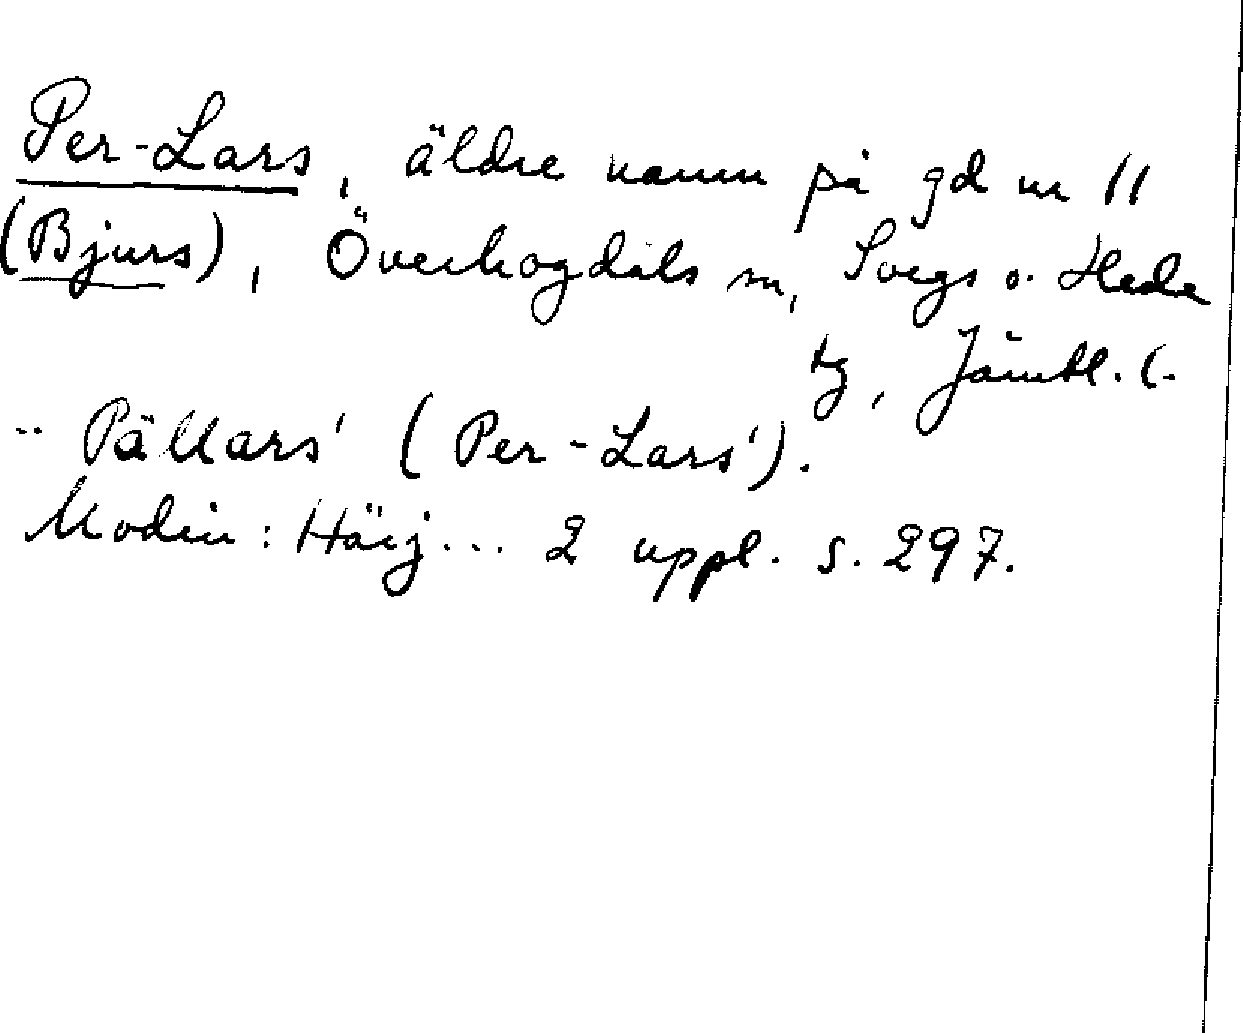 Per-Lars, äldre namn på gd nr 11
(Bjurs), Överhogdals sn, Svegs o. Hede
tg, Jämtl. l.
.. Pällars' (Per-Lars').
Modin: Härj... 2 uppl. s. 297.